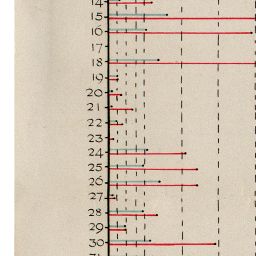 14
15
16
17
18
19
20
21
22
23
24
25
26
27
28
29
30